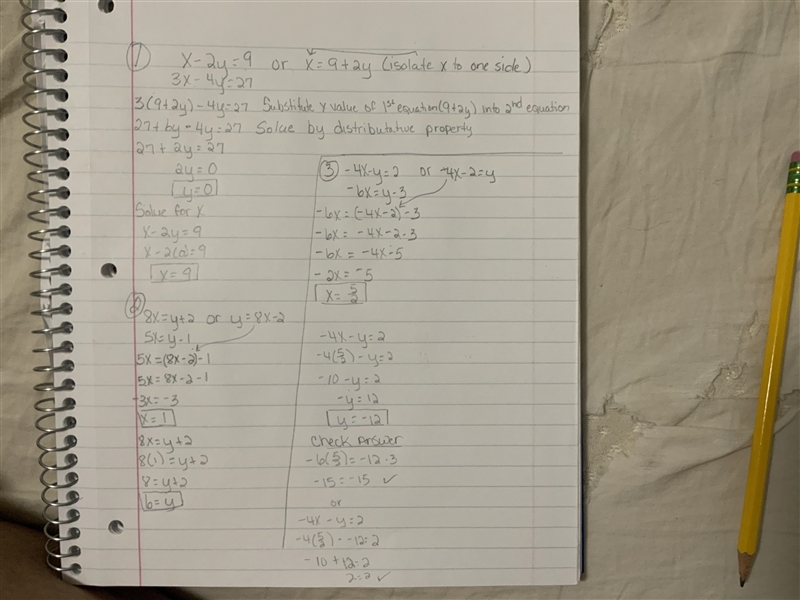 ① x-2y=9 or x=9+2y (isolate x to one side)
3x-4y=27
3(9+2y)-4y=27 Substitute x value of 1st equation (9+2y) into 2nd equation
27+6y-4y=27 Solve by distributative property
27+2y=27
2y=0
y=0
Solve for x
x-2y=9
x-2(0)=9
x=9
② 8x=y+2 or y=8x-2
5x=y-1
5x=(8x-2)-1
5x=8x-2-1
-3x=-3
x=1
8x=y+2
8(1)=y+2
8=y+2
6=y
③ -4x-y=2 or -4x-2=y
-6x=y-3
-6x=(-4x-2)-3
-6x=-4x-2-3
-6x=-4x-5
-2x=-5
x=5/2
-4x-y=2
-4(5/2)-y=2
-10-y=2
-y=12
y=-12
Check Answer
-6(5/2)=-12-3
-15=-15 ✓
or
-4x-y=2
-4(5/2)--12=2
-10+12=2
2=2 ✓